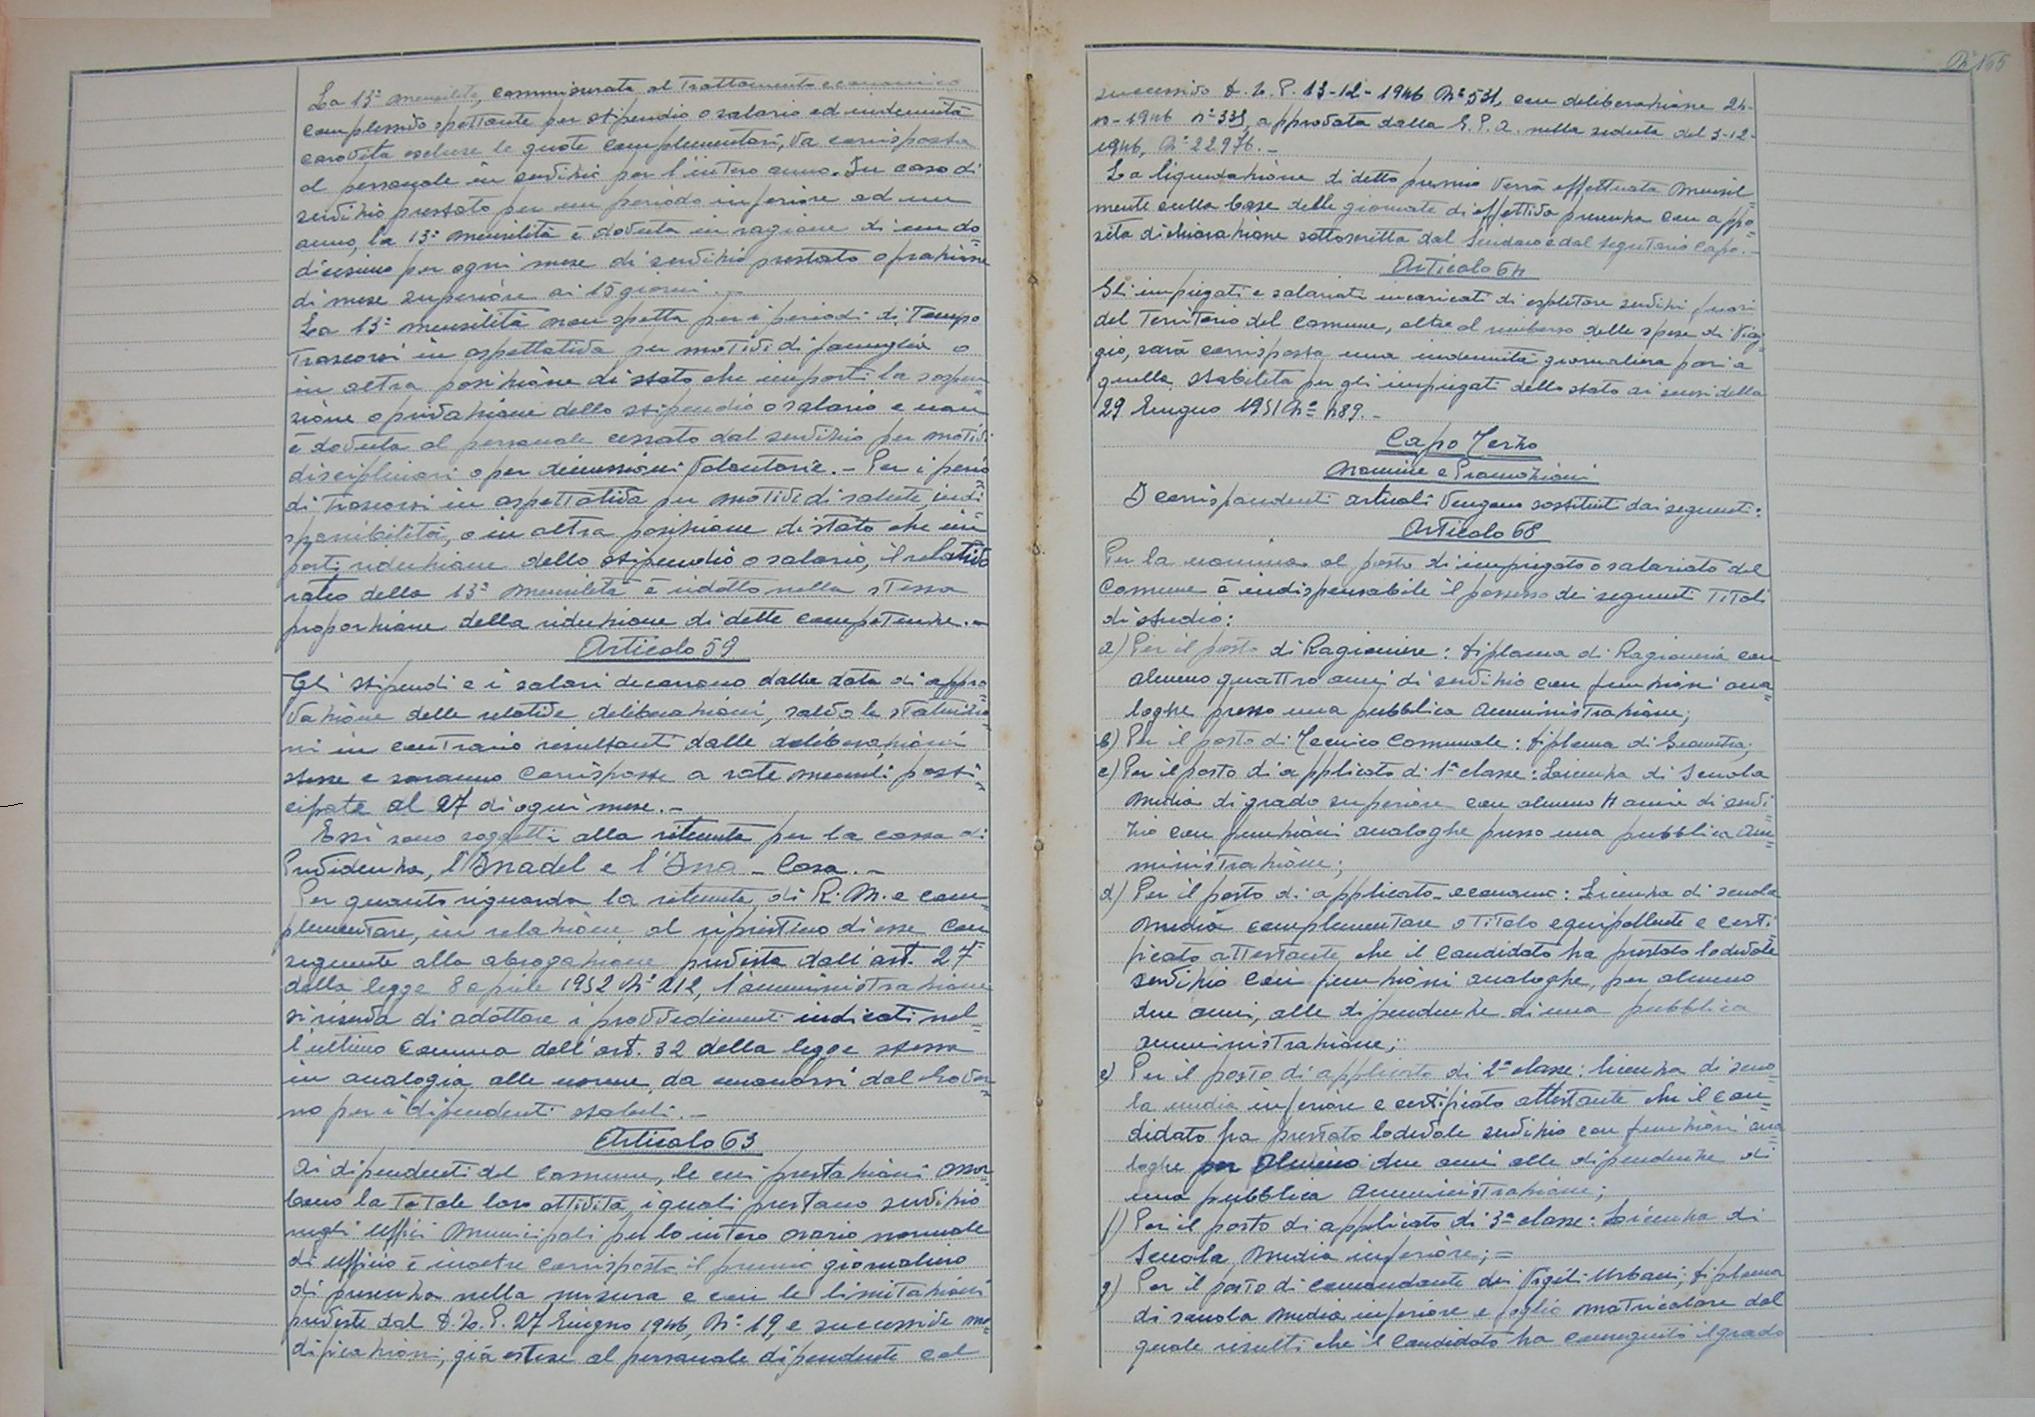 La 13ª mensilità, commisurata al trattamento economico
complessivo spettante per stipendio o salario ed indennità
carovita escluse le quote complementari, va corrisposta
al personale in servizio per l'intero anno. In caso di
servizio prestato per un periodo inferiore ad un
anno, la 13ª mensilità è dovuta in ragione di un do=
dicesimo per ogni mese di servizio prestato o frazione
di mese superiore ai 15 giorni. -
La 13ª mensilità non spetta per i periodi di tempo
trascorsi in aspettativa per motivi di famiglia o
in altra posizione di stato che importi la sospen=
sione o privazione dello stipendio o salario e non
è dovuta al personale cessato dal servizio per motivi
disciplinari o per dimissioni volontarie. - Per i perio
di trascorsi in aspettativa per motivi di salute, indi=
sponibilità, o in altra posizione di stato che im=
porti riduzione dello stipendio o salario, il relativo
rateo della 13ª mensilità è ridotto nella stessa
proporzione della riduzione di dette competenze. -
Articolo 59
Gli stipendi e i salari decorrono dalla data di appro=
vazione delle relative deliberazioni, salvo le statuizio=
ni in contrario risultanti dalle deliberazioni
stesse e saranno corrisposte a rate mensili posti=
cipate al 27 di ogni mese. -
Essi sono soggetti alla ritenuta per la cassa di
Previdenza, l'Inadel e l'Ina - Casa. -
Per quanto riguarda la ritenuta di R. M. e com=
plementare, in relazione al ripristino di esse con
seguente alla abrogazione prevista dall'art. 27
della legge 8 aprile 1952 Nº 212, l'amministrazione
si riserva di adottare i provvedimenti indicati nel=
l'ultimo comma dell'art. 32 della legge stessa
in analogia alle norme da emanarsi dal Gover=
no per i dipendenti statali. -
Articolo 63
Ai dipendenti del Comune, le cui prestazioni assor=
bono la totale loro attività, i quali prestano servizio
negli uffici Municipali per lo intero orario normale
di ufficio è inoltre corrisposto il premio giornaliero
di presenza nella misura e con le limitazioni
previste dal D. L. P. 27 Giugno 1946, Nº 19, e successive mo=
dificazioni, già estese al personale dipendente col
Nº 165
successivo D. L. P. 13-12-1946 Nº 531, con deliberazione 24-
-1946 nº 331, approvata dalla G. P. A. nella seduta del 3-12-
1946, Nº 22976. -
La liquidazione di detto premio verrà effettuata mensil
mente sulla base delle giornate di effettiva presenza con appo=
sita dichiarazione sottoscritta dal Sindaco e dal Segretario Capo. -
Articolo 64
Gli impiegati e salariati incaricati di espletare servizi fuori
del territorio del Comune, oltre al rimborso delle spese di viag=
gio, sarà corrisposta una indennità giornaliera pari a
quella stabilita per gli impiegati dello stato ai sensi della
29 Giugno 1951 Nº 489. -
Capo Terzo
Nomine e Promozioni
I corrispondenti articoli vengono sostituiti dai seguenti:
Articolo 68
Per la nomina al posto di impiegato o salariato del
Comune è indispensabile il possesso dei seguenti titoli
di studio:
a) Per il posto di Ragioniere: diploma di Ragioneria con
almeno quattro anni di servizio con funzioni ana=
loghe presso una pubblica amministrazione;
b) Per il posto di Tecnico Comunale: diploma di Geometra;
c) Per il posto di applicato di 1ª classe: Licenza di Scuola
Media di grado superiore con almeno 4 anni di servi=
zio con funzioni analoghe presso una pubblica Am=
ministrazione;
d) Per il posto di applicato-economo: Licenza di scuola
Media complementare o titolo equipollente e certi=
ficato attestante che il candidato ha prestato lodevole
servizio con funzioni analoghe, per almeno
due anni, alle dipendenze di una pubblica
amministrazione;
e) Per il posto di applicato di 2ª classe: licenza di scuo=
la media inferiore e certificato attestante che il can=
didato ha prestato lodevole servizio con funzioni ana=
loghe per almeno due anni alle dipendenze di
una pubblica Amministrazione;
f) Per il posto di applicato di 3ª classe: Licenza di
Scuola Media inferiore; =
g) Per il posto di comandante dei Vigili Urbani; diploma
di scuola media inferiore e foglio matricolare dal
quale risulti che il candidato ha conseguito il grado